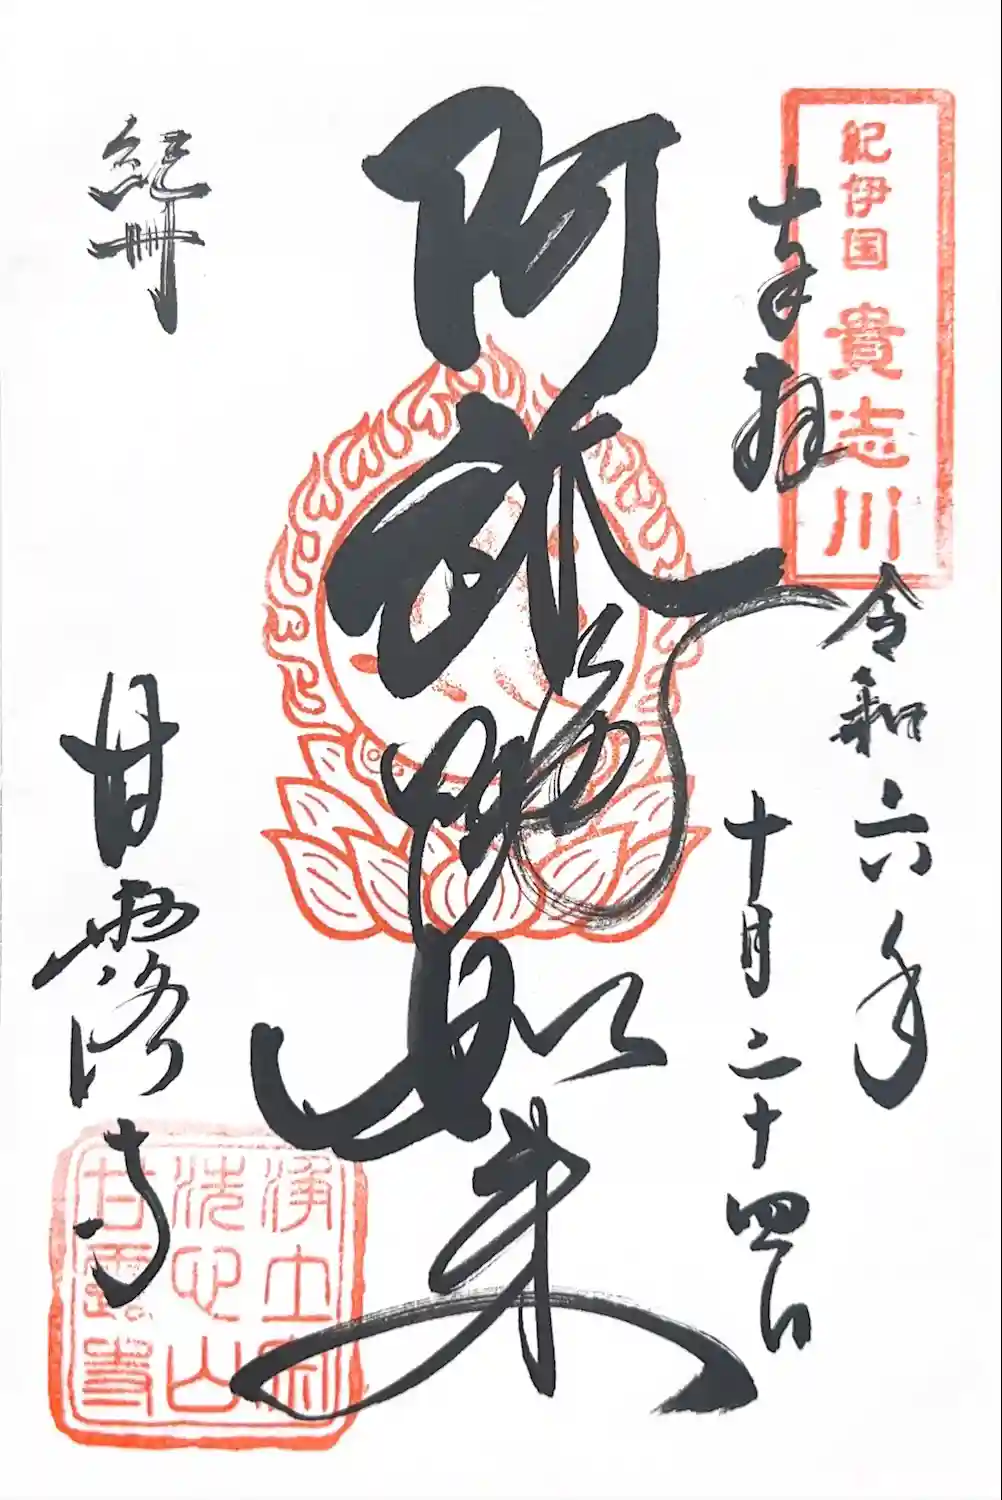 紀伊国 貴志川
奉拝
令和六年
十月二十四日
阿弥陀如来
紀州
甘露寺
淨土宗
洗心山
甘露寺